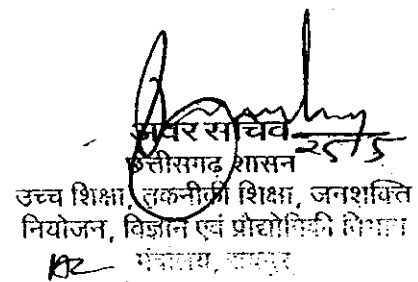 अवर सचिव
25/5
छत्तीसगढ़ शासन
उच्च शिक्षा, तकनीकी शिक्षा, जनशक्ति
नियोजन, विज्ञान एवं प्रौद्योगिकी विभाग
मंत्रालय, रायपुर